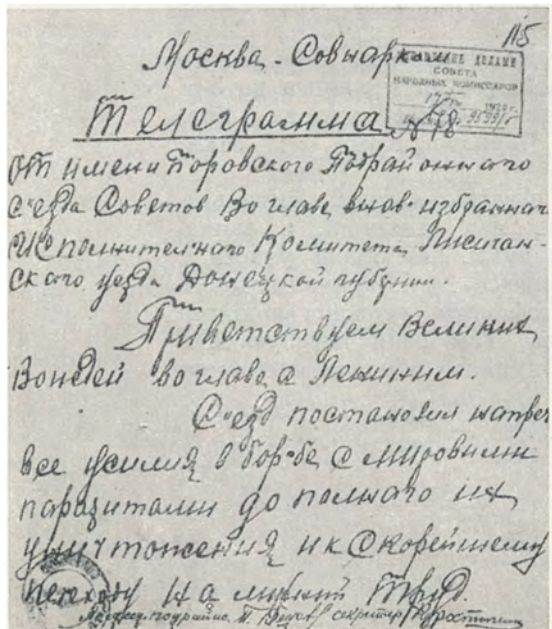 115
Москва - Совнарком
УПРАВЛЕНИЕ ДЕЛАМИ
СОВЕТА
НАРОДНЫХ КОМИССАРОВ
Телеграмма № 18
от имени Подрайонного
с'езда Советов Во главе внов-избранного
Исполнительного Комитета, Лисичан-
ского уезда Донецкой губернии.
Приветствуем Великих
Вождей во главе с Лениным.
С'езд постановил напреч
все усилия в борьбе с мировыми
паразитами до полнаго их
уничтожения и к скорейшему
на мирный труд.
секретарь